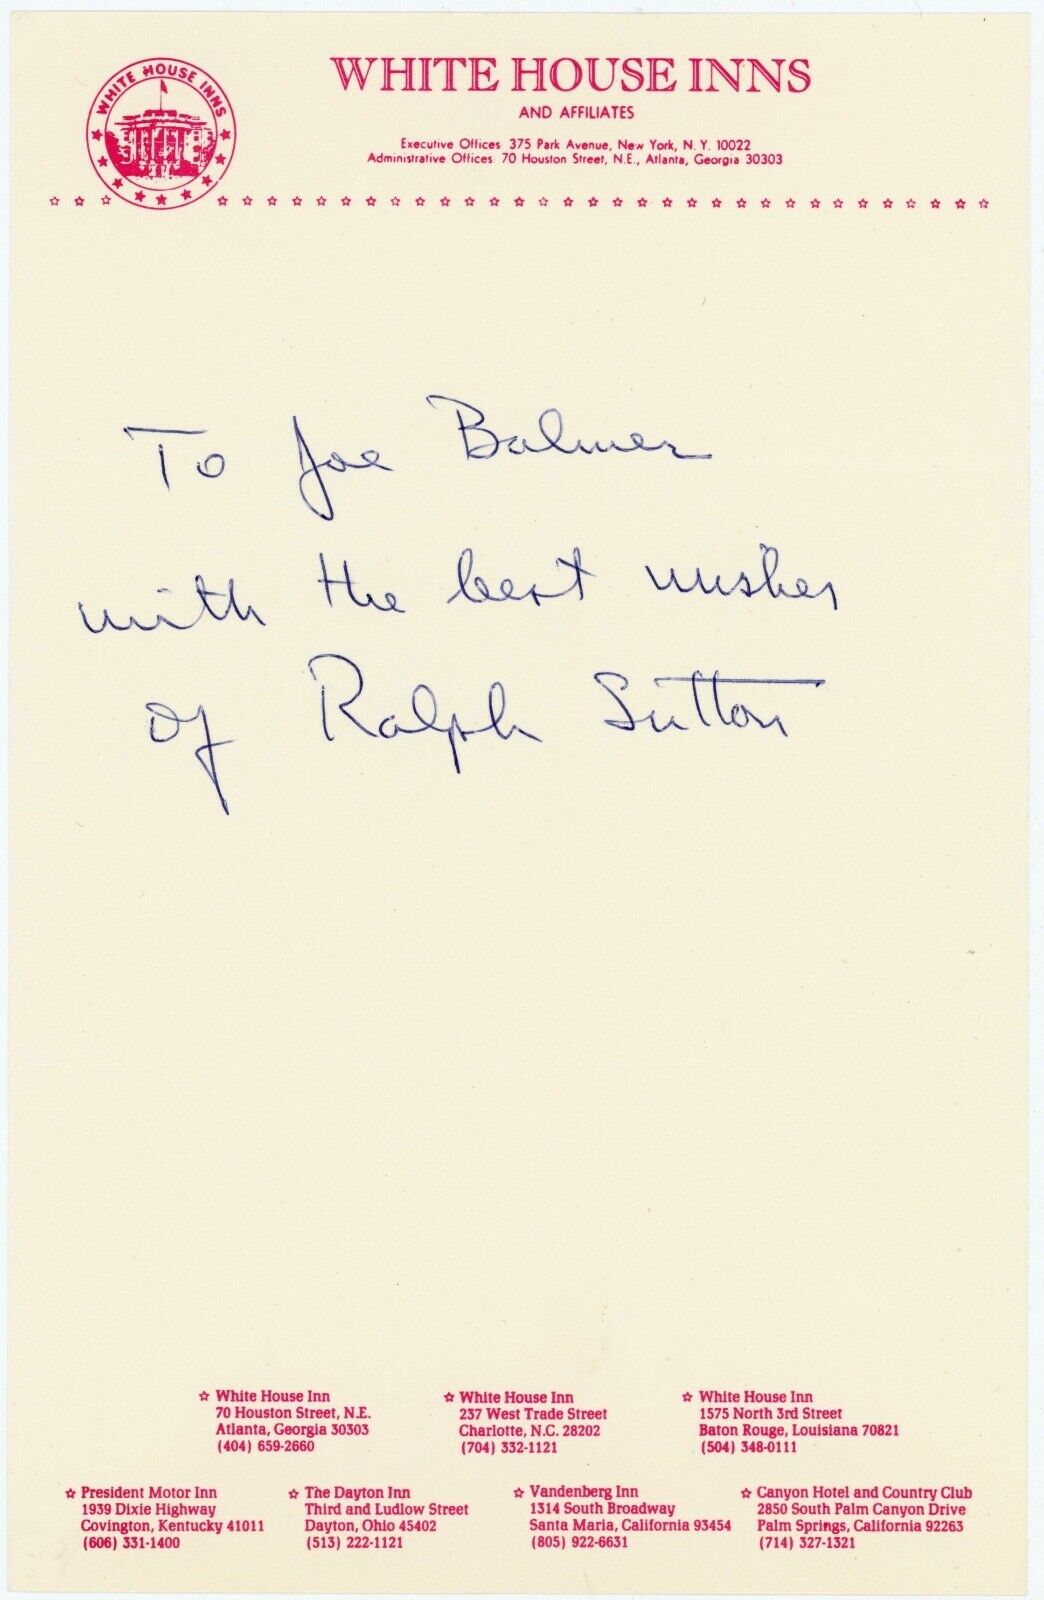 WHITE HOUSE INNS
WHITE HOUSE INNS
AND AFFILIATES
Executive Offices 375 Park Avenue, New York, N. Y. 10022
Administrative Offices 70 Houston Street, N.E., Atlanta, Georgia 30303
To Joe Balmer
with the best wishes
of Ralph Sutton
☆ White House Inn
70 Houston Street, N.E.
Atlanta, Georgia 30303
(404) 659-2660
☆ White House Inn
237 West Trade Street
Charlotte, N.C. 28202
(704) 332-1121
☆ White House Inn
1575 North 3rd Street
Baton Rouge, Louisiana 70821
(504) 348-0111
☆ President Motor Inn
1939 Dixie Highway
Covington, Kentucky 41011
(606) 331-1400
☆ The Dayton Inn
Third and Ludlow Street
Dayton, Ohio 45402
(513) 222-1121
☆ Vandenberg Inn
1314 South Broadway
Santa Maria, California 93454
(805) 922-6631
☆ Canyon Hotel and Country Club
2850 South Palm Canyon Drive
Palm Springs, California 92263
(714) 327-1321